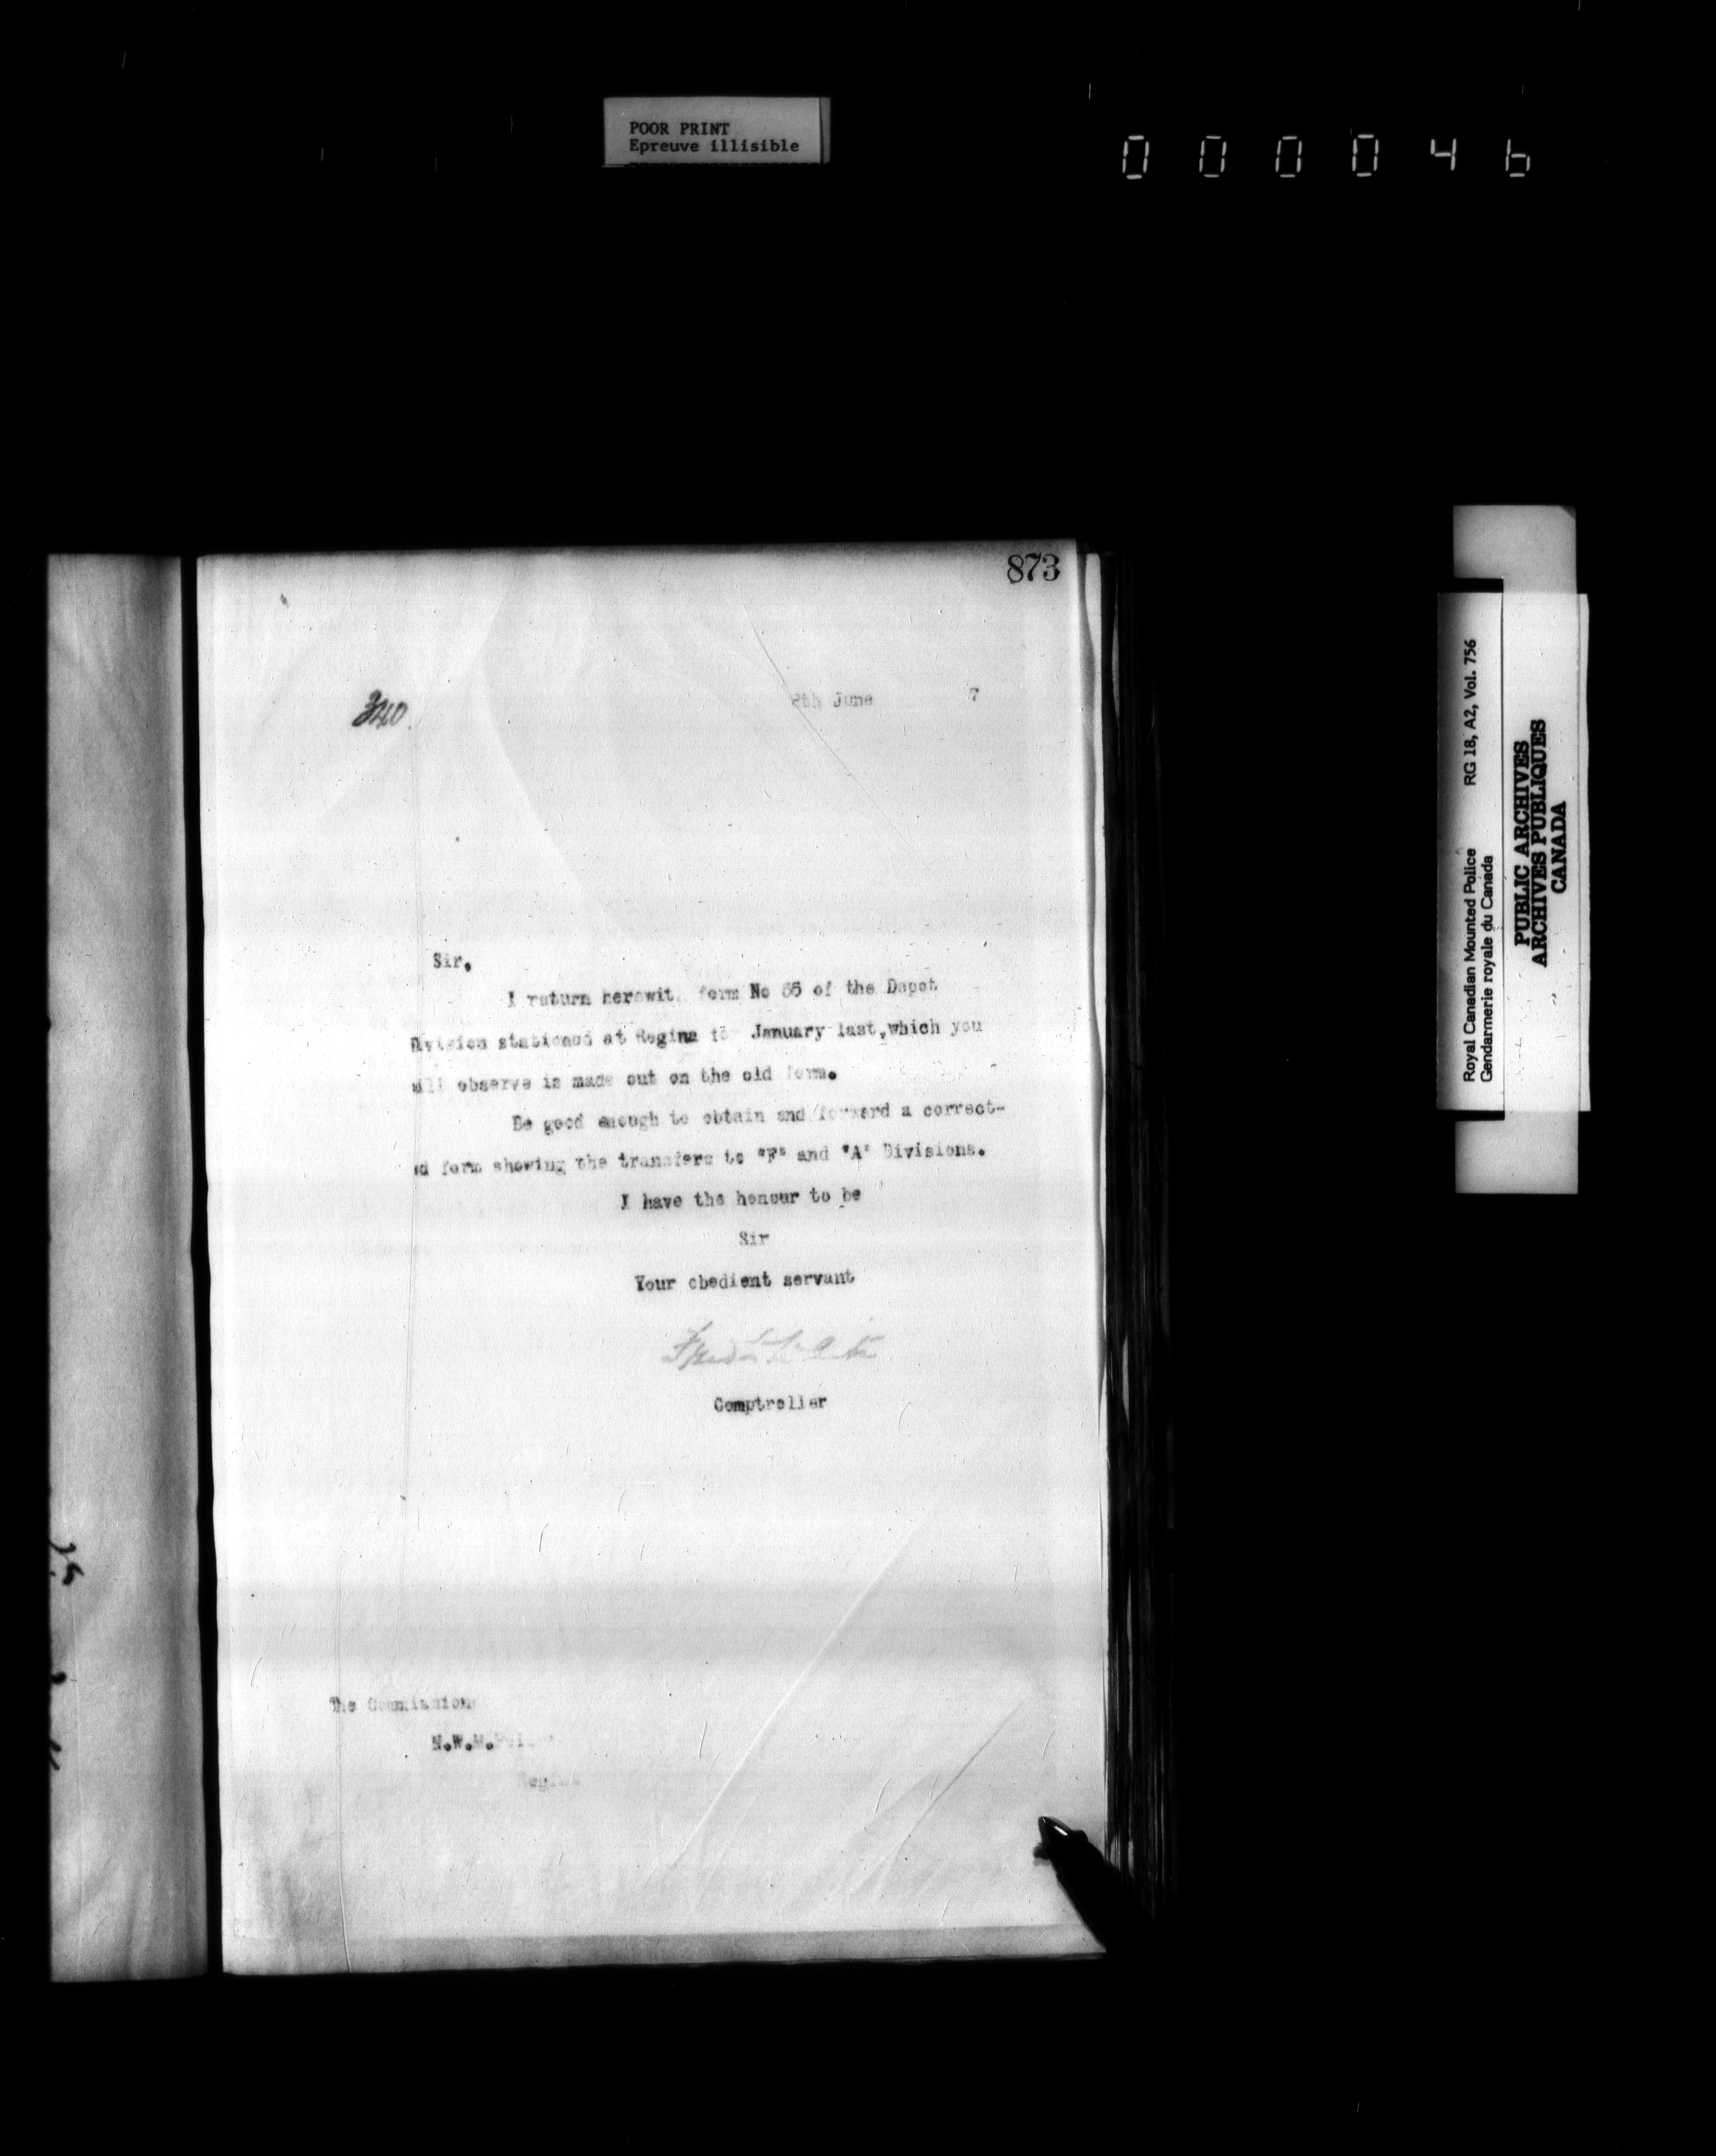 POOR PRINT
Epreuve illisible
000046
873
340
8th June 7
Sir.
I return herewit form No 55 of the Depot
Division stationed at Regina for January last, which you
will observe is made out on the old form.
Be good enough to obtain and forward a correct-
ed form showing the transfers to "F" and "A" Divisions.
I have the honour to be
Sir
Your obedient servant
Fred White
Comptroller
The Commissione
N.W.M.Police
Regina
Royal Canadian Mounted Police RG 18, A2, Vol. 756
Gendarmerie royale du Canada
PUBLIC ARCHIVES
ARCHIVES PUBLIQUES
CANADA